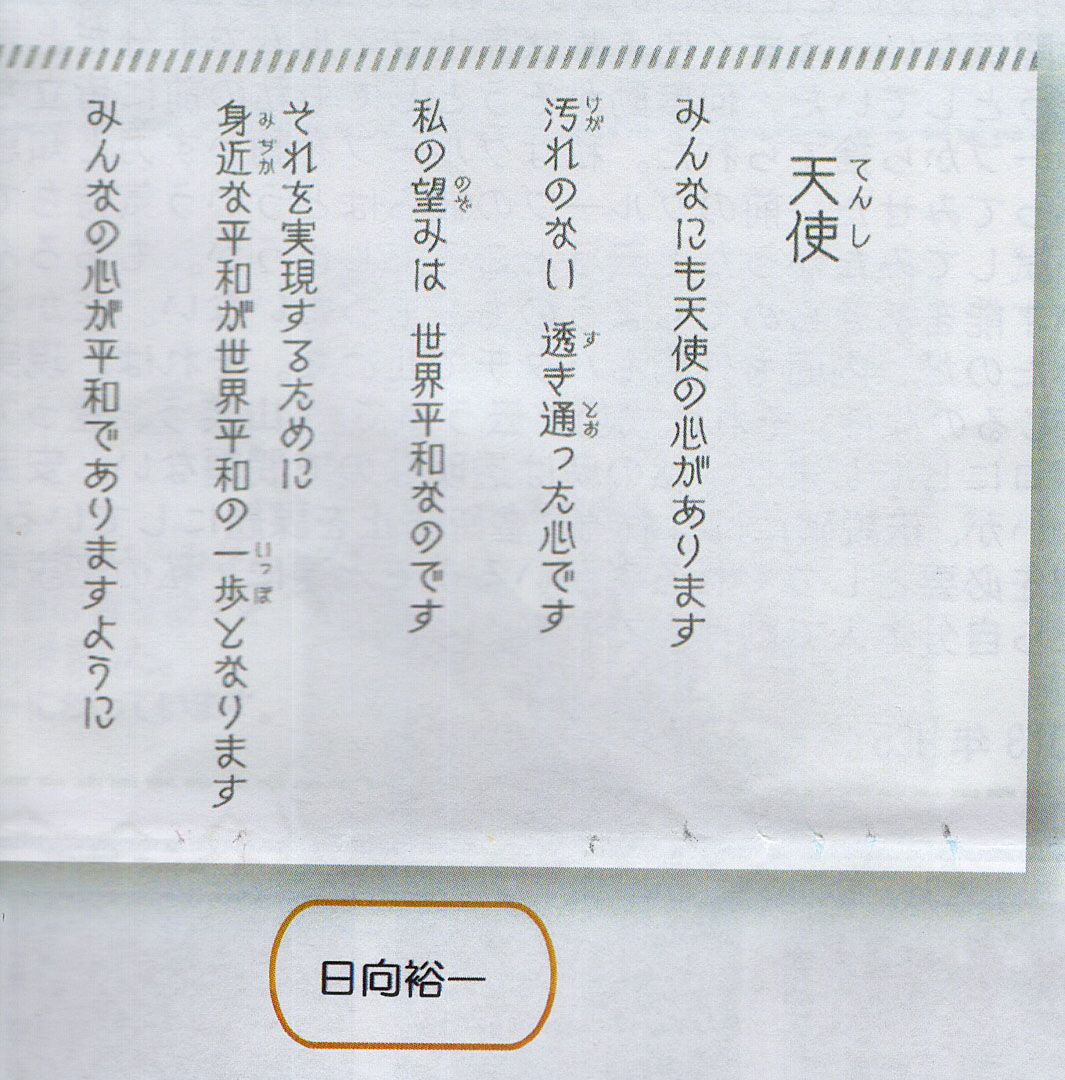 天使
みんなにも天使の心があります
汚れのない　透き通った心です
私の望みは　世界平和なのです
それを実現するために
身近な平和が世界平和の一歩となります
みんなの心が平和でありますように
日向裕一